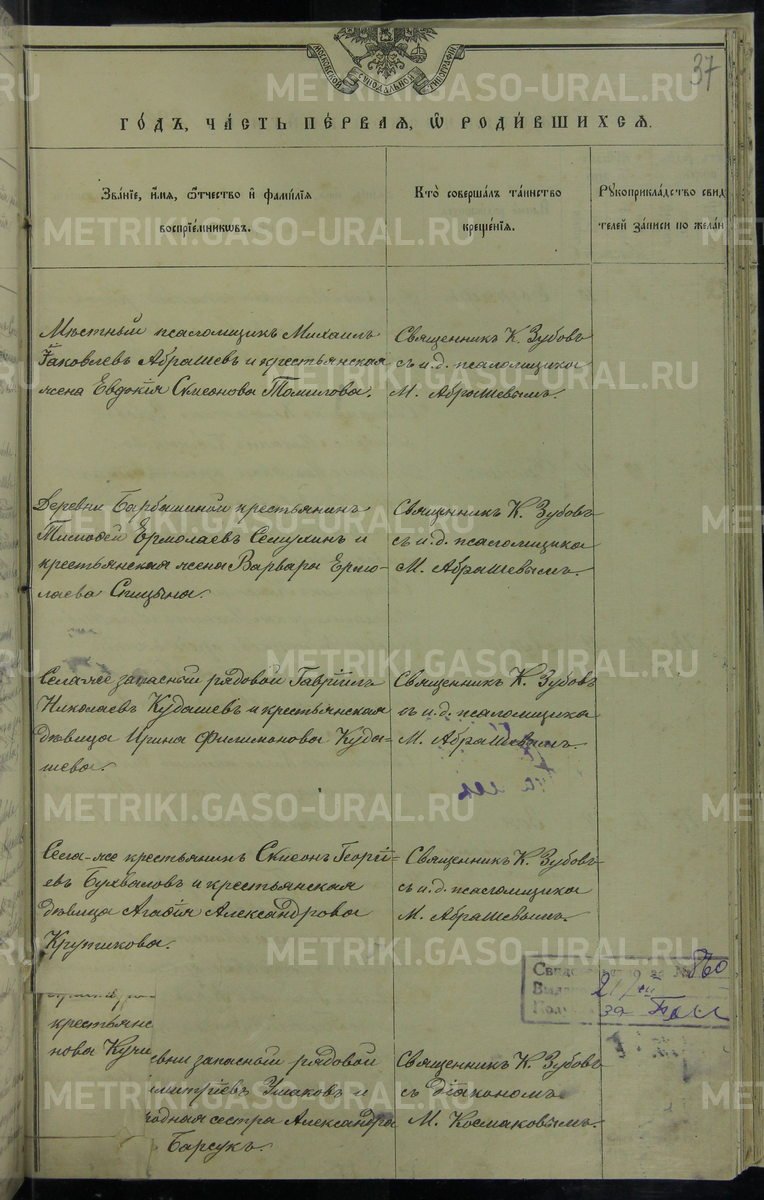 МОСКОВСКОЙ СѴНОДАЛЬНОЙ ТИПОГРАФІИ
37
METRIKI.GASO-URAL.RU
ГО́ДЪ, ЧА́СТЬ ПЕ́РВАЯ, Ѡ҆ РОДИ́ВШИХСЯ.
Зва́нїе, и҆́мя, ѻ҆́тчество и҆ фами́лїя
воспрїе́мникѡвъ.
Кто̀ соверша́лъ та́инство
креще́нїя.
Рꙋкоприкла́дство свид
телей за́писи по жела́н
Мѣстный псаломщикъ Михаилъ
Іаковлевъ Абрашевъ и крестьянская
жена Евдокія Симеонова Томилова.
Священникъ К. Зубовъ
съ и.д. псаломщика
М. Абрашевымъ.
Деревни Барбашиной крестьянинъ
Тимофей Ермолаевъ Семухинъ и
крестьянская жена Варвара Ермо-
лаева Спицына.
Священникъ К. Зубовъ
съ и.д. псаломщика
М. Абрашевымъ.
Села-же запасный рядовой Гавріилъ
Николаевъ Кудашевъ и крестьянская
дѣвица Ирина Филимонова Куда-
шева.
Священникъ К. Зубовъ
съ и.д. псаломщика
М. Абрашевымъ.
Села-же крестьянинъ Симеонъ Георгі-
евъ Бухваловъ и крестьянская
дѣвица Агафія Александрова
Крутикова.
Священникъ К. Зубовъ
съ и.д. псаломщика
М. Абрашевымъ.
860
за
крестьянс
нова Кучи
вни запасный рядовой
имитріевъ Ушаковъ и
родная сестра Александра
Барсукъ.
Священникъ К. Зубовъ
съ діакономъ
М. Космаковымъ.